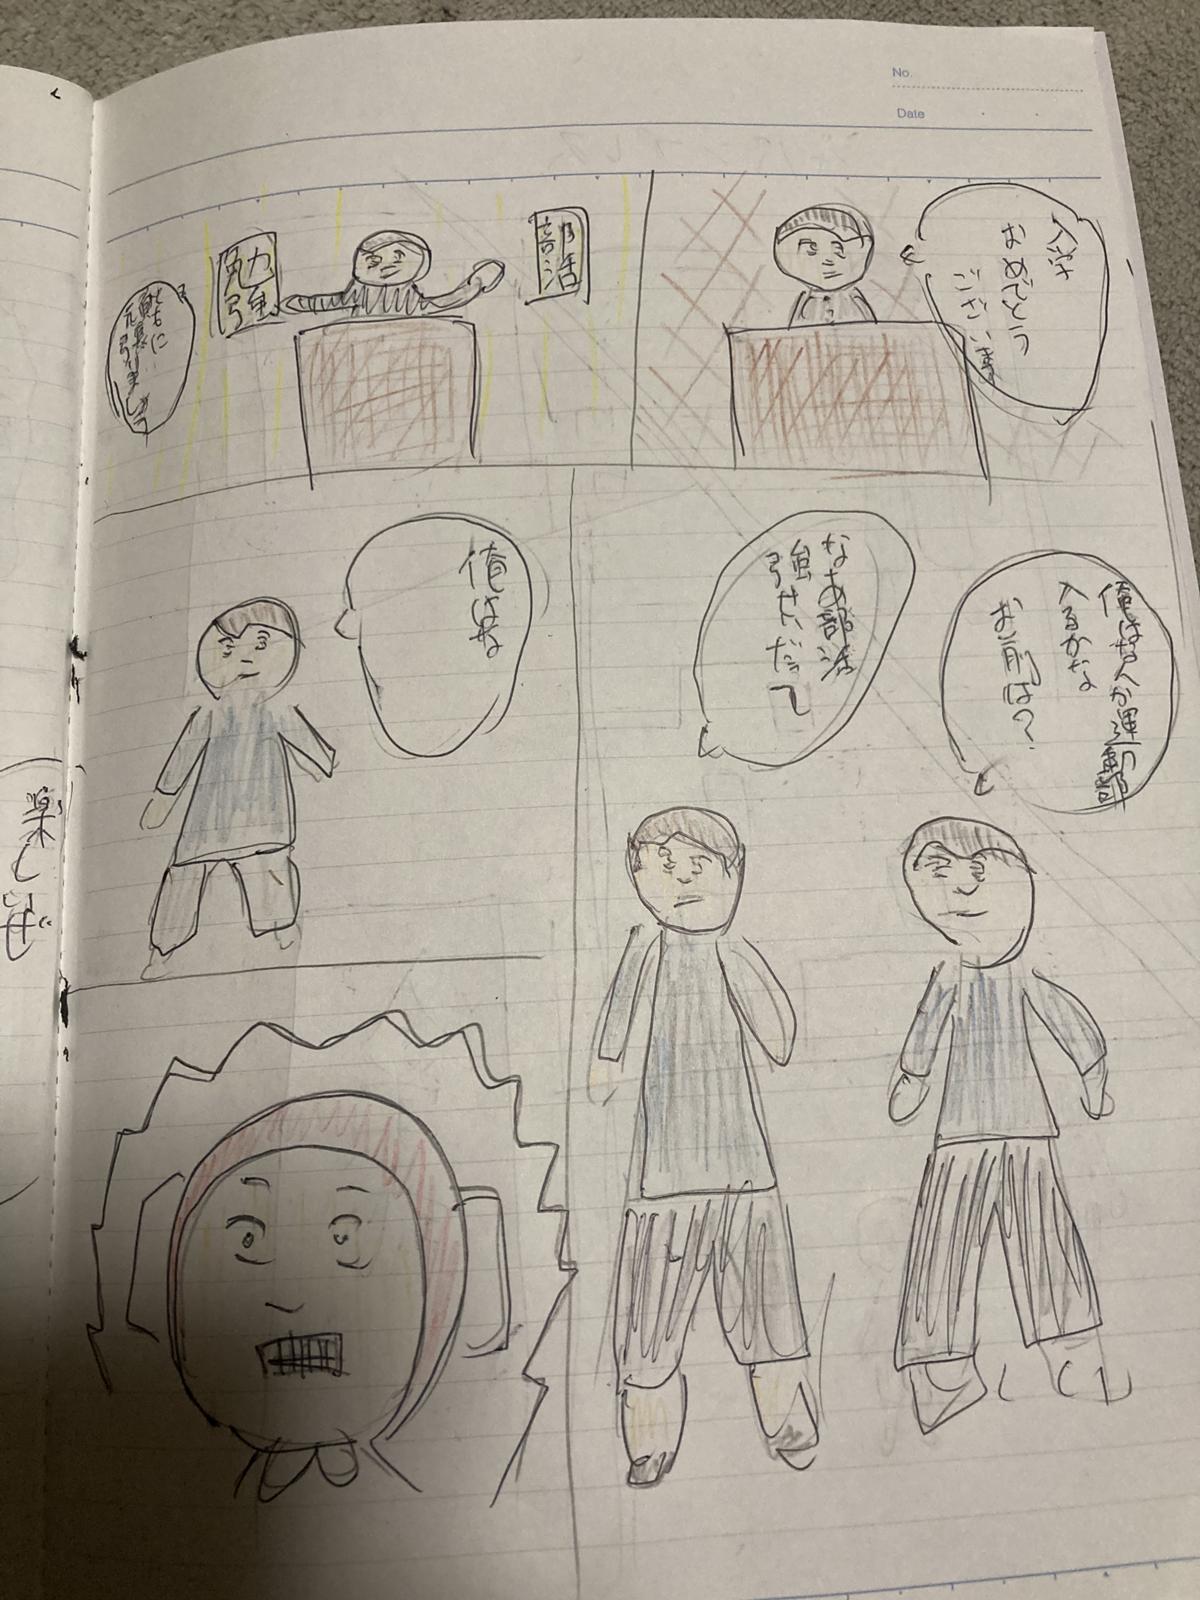 No.
Date
入学
おめでとう
ございます
部活
勉強
ともに
頑張りましょう
なあ部活
強せいだって
俺はなんか運動部
入るかな
お前は？
俺はな
楽しむぜ